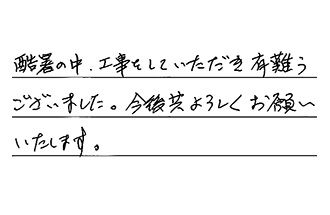 酷暑の中、工事をしていただき有難う
ございました。今後共よろしくお願い
いたします。